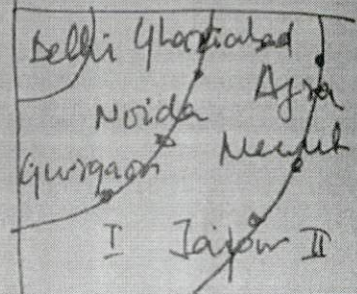 Delhi Ghaziabad
Agra
Noida
Meerut
Gurgaon
I Jaipur II